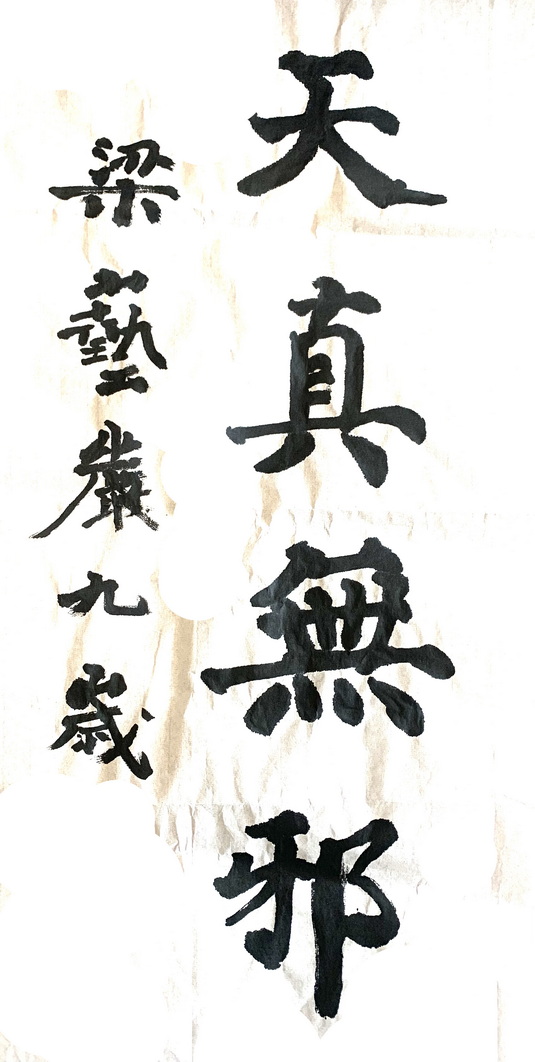 天真無邪
梁藝嚴九歲